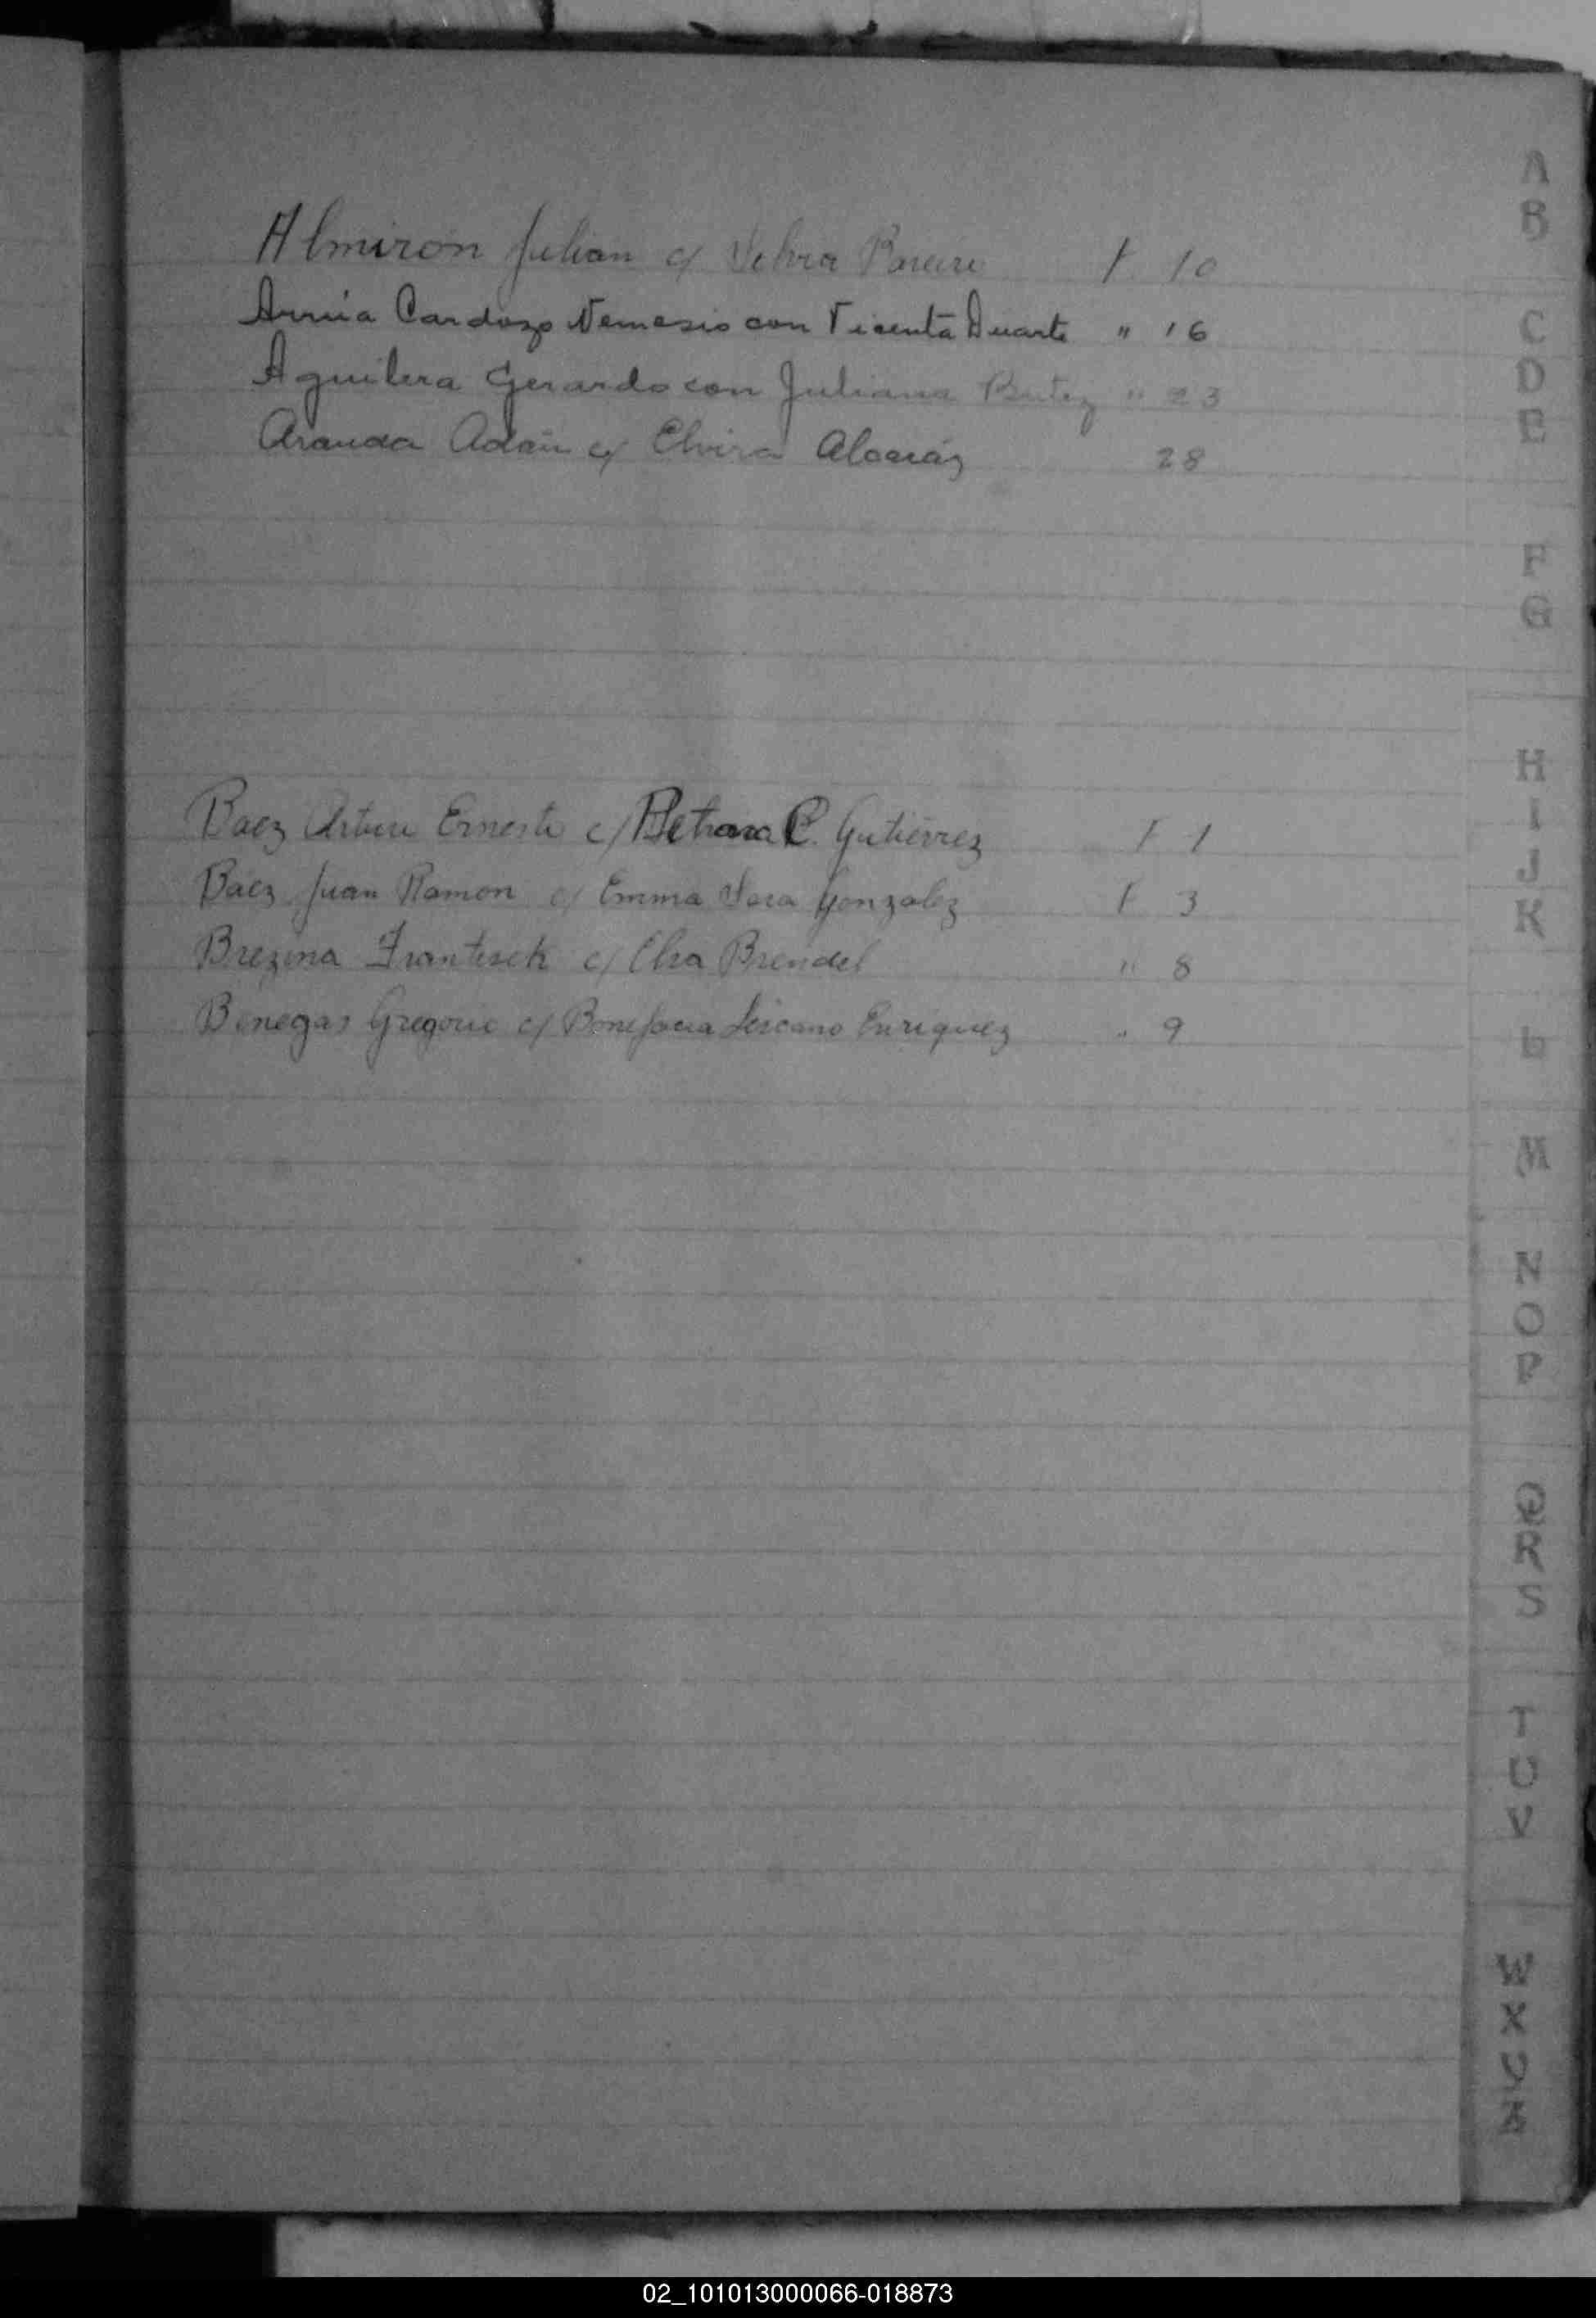 Almirón Julian c/ Selva Pareiro F. 10
Arrúa Cardozo Nemesio con Vicenta Duarte " 16
Aguilera Gerardo con Juliana " 23
Aranda Adán c/ Elvira Alcaráz 28
Baez Arturo Ernesto c/ Petrona C. Gutiérrez F 1
Baez Juan Ramon c/ Emma Sara Gonzalez F 3
Brezina Frantisek c/ Elsa Brendel " 8
Benegas Gregorio c/ Bonifacia Lescano Enriquez " 9
A
B
C
D
E
F
G
H
I
J
K
L
M
N
O
P
Q
R
S
T
U
V
W
X
02_101013000066-018873